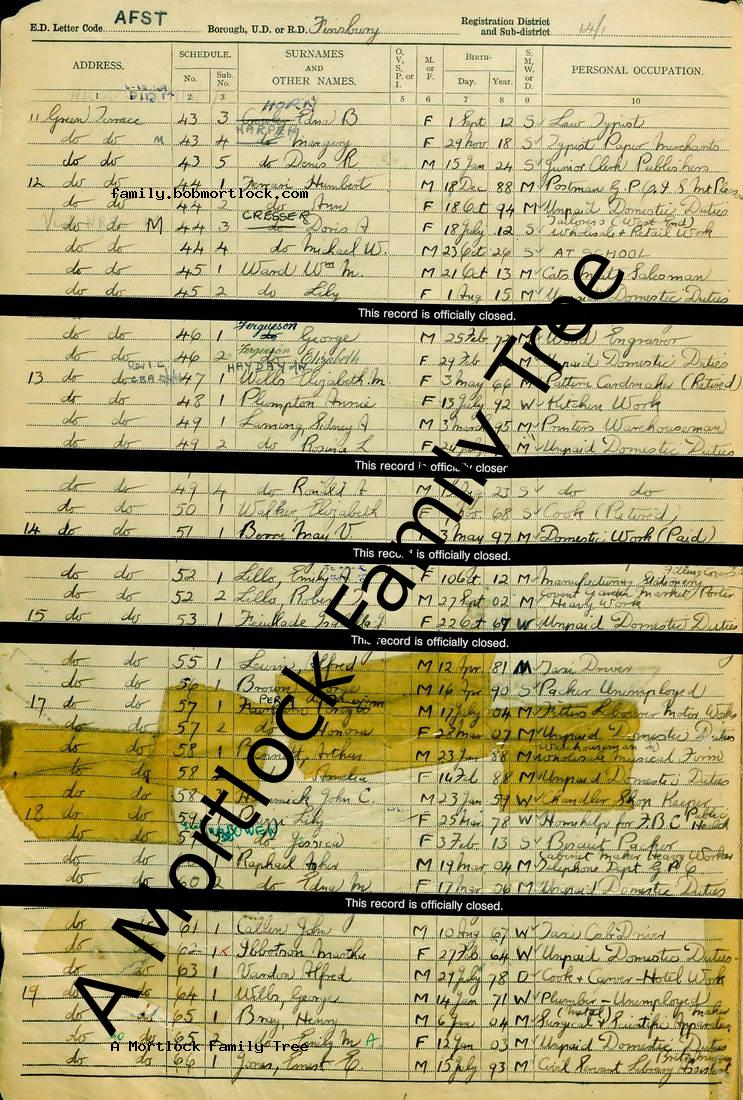 AFST
E.D. Letter Code Borough, U.D. or R.D. Finsbury Registration District and Sub-district 14/1
ADDRESS. SCHEDULE. No. Sub. No. SURNAMES AND OTHER NAMES. O, V, S, P, or I. M. or F. BIRTH- Day. Year. S, M, W, or D. PERSONAL OCCUPATION.
1 2 3 4 5 6 7 8 9 10
HORN
11 Green Terrace 43 3 Edna B F 1 Sept 12 S Law Typist
HARPER
do do M 43 4 do Margery F 29 Nov 18 S Typist Paper Merchants
do do 43 5 do Denis R M 15 Jan 24 S Junior Clerk Publishers
12 do do 44 1 Humbert M 18 Dec 88 M Postman G.P.O.
family.bobmortlock.com
do do 44 2 do Ann F 18 Oct 94 M Unpaid Domestic Duties
CRESSER
do do M 44 3 do Doris A F 18 July 12 S Wholesale & Retail Work
do do 44 4 do Michael W. M 23 Oct 26 S AT SCHOOL
do do 45 1 Ward Wm M. M 21 Oct 13 M Salesman
do do 45 2 do Lily F 1 Aug 15 M Domestic Duties
This record is officially closed.
Fergueson
do do 46 1 do George M 25 Feb 72 M Wood Engraver
Ferguson
do do 46 2 do Elizabeth F 29 Feb Unpaid Domestic Duties
HAYDAY
13 do do 47 1 Wells Elizabeth M. F 3 May 66 M Pattern Cardmaker (Retired)
do do 48 1 Plumpton Annie F 13 July 92 W Kitchen Work
do do 49 1 Laming Sidney A M 3 March 95 M Printers Warehouseman
do do 49 2 do Rosina L F M Unpaid Domestic Duties
This record is officially closed
do do 49 4 do Ronald A M 23 S do do
do do 50 1 Walker Elizabeth 68 S Cook (Retired)
14 do do 51 1 Berry May V. F 3 May 97 M Domestic Work (Paid)
This record is officially closed.
do do 52 1 Lillo, Emily A. F 10 Oct 12 M Manufacturing Stationery
do do 52 2 Lillo, Robert M 27 Sept 02 M Covent Garden Market Porter Heavy Work
15 do do 53 1 F 22 Oct 67 W Unpaid Domestic Duties
This record is officially closed.
do do 55 1 Lewis, Alfred M 12 Apr 81 M Taxi Driver
do do 56 1 Brown M 16 Apr 90 S Packer Unemployed
17 do do 57 1 M 17 July 04 M Fitters Labourer Motor Works
do do 57 2 do Honora F 28 Mar 07 M Unpaid Domestic Duties
do do 58 1 Bennett, Arthur M 23 Jan 88 M Warehouseman Wholesale Musical Firm
do do 58 2 do Amelia F 14 Feb 88 M Unpaid Domestic Duties
do do 58 3 John C. M 23 Jan 59 W Chandler Shop Keeper
18 do do 59 1 Lily F 25 Mar 78 W Homehelp for F.B.C Public Health
BOWEN
do do 59 do Jessica F 3 Feb. 13 S Biscuit Packer
do do Raphael M 19 Mar 04 M Cabinet Maker Heavy Worker Telephone Dept G.P.O
do do 60 2 do Edna M. F 17 Mar 06 M Unpaid Domestic Duties
This record is officially closed.
do do 61 1 Callen John M 10 Aug 67 W Taxi Cab Driver
do do 62 1 Ibbotson Martha F 27 Feb 64 W Unpaid Domestic Duties
do do 63 1 Vardon Alfred M 27 July 78 D Cook & Carver - Hotel Work
19 do do 64 1 Wells, George M 14 Jan 71 W Plumber - Unemployed
do do 65 1 Bray, Henry M 6 Jan 04 M Surgical & Apparatus maker (Metal)
do do 65 2 do Emily M A F 12 Jan 03 M Unpaid Domestic Duties
A Mortlock Family Tree
do do 66 1 Jones, Ernest E. M 15 July 93 M Civil Servant Library Assistant British Museum
A Mortlock Family Tree